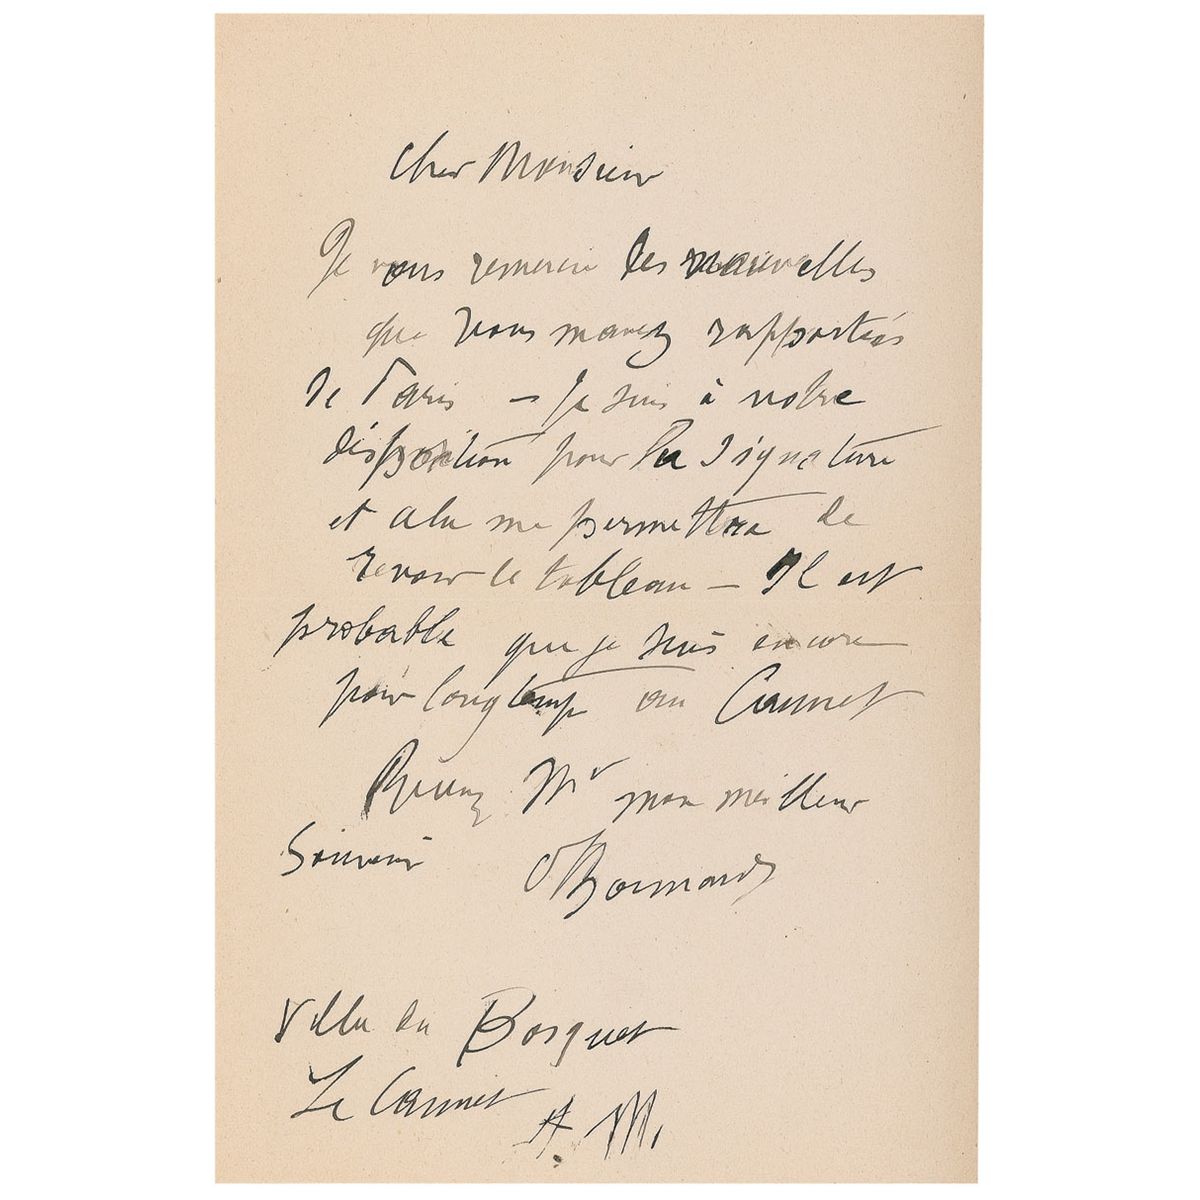 Cher Monsieur
Je vous remercie les nouvelles
que vous mavez rapportées
de Paris – Je suis à votre
disposition pour la signature
et cela me permettra de
revoir le tableau – Il est
probable que je suis encore
pour longtemp au Cannet
Recevez Mr mon meilleur
Souvenir PBonnard
Villa du Bosquet
Le Cannet
A. M.